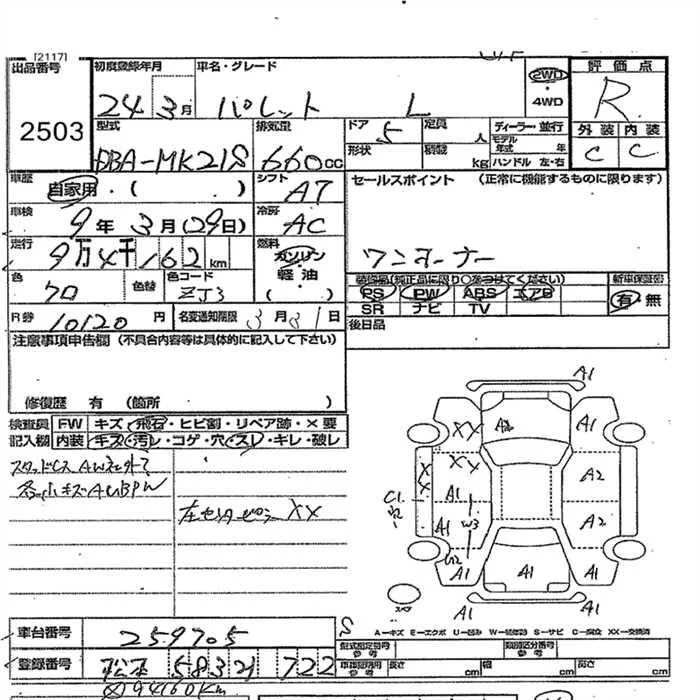 [2117]
出品番号
2503
初度登録年月
24 3月
車名・グレード
パレット L
2WD
4WD
評価点
R
外装 内装
C C
型式
DBA-MK21S
排気量
660cc
ドア
5
形状
定員
人
積載
kg
ディーラー・並行
モデル年式 年
ハンドル 左・右
車歴
自家用・( )
シフト
AT
セールスポイント (正常に機能するものに限ります)
ワンオーナー
車検
9年3月(29日)
冷房
AC
走行
9万4千162km
燃料
ガソリン・軽油
( )
色
クロ
色替
色コード
ZJ3
装備品(純正品に限り○をつけてください)
PS PW ABS エアB
SR ナビ TV
新車保証書
有・無
R券
10120円
名変通知期限
3月31日
後日品
注意事項申告欄(不具合内容等は具体的に記入して下さい)
修復歴 有(箇所 )
検査員記入欄
FW キズ・飛石・ヒビ割・リペア跡・×要
内装 キズ・汚レ・コゲ・穴・スレ・キレ・破レ
XX
A1
A2
A1
XX
XX
A1
A1
W3
A2
A2
C1
A1
A1
A1
A1
A1
スペア
A-キズ E-エクボ U-凹み W-補修跡 S-サビ C-腐食 XX-交換済
車台番号
259705
登録番号
松本 583 722
型式指定番号
参考
類別区分番号
参考
車検証明用
参考
長さ cm 幅 cm 高さ cm
94160Km